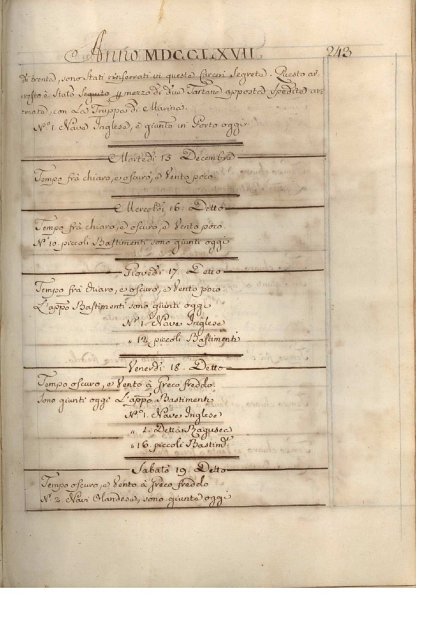 Anno MDCCLXVII 243
di trenta, sono Stati rinserrati in queste Carceri Segrete. Questo ar
resto è Stato Seguito p mezzo di due Tartane apposta Spedite ar
mate, con La Truppa di Marina.
N.º 1. Nave Inglese, è giunta in Porto oggi
Martedì 15 Decembre
Tempo frà chiaro, e oscuro, e Vento poco
Mercoldì 16. Detto
Tempo frà chiaro, ed oscuro, e Vento poco
N. 10. piccoli Bastimenti sono giunti oggi
Giovedì 17. Detto
Tempo frà chiaro, e oscuro, e Vento poco
L'appo Bastimenti sono giunti oggi
N.º 1. Nave Inglese
" 12. piccoli Bastimenti
Venerdì 18. Detto
Tempo oscuro, e Vento à Greco freddo
Sono giunti oggi L'appo Bastimenti
N.º 1. Nave Inglese
" 1. Detta Ragusea
" 16. piccoli Bastimti
Sabato 19. Detto
Tempo oscuro, e Vento à Greco freddo
N. 2. Navi Olandese, sono giunte oggi